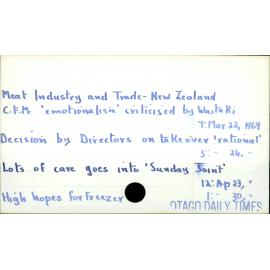 Meat Industry and Trade - New Zealand
C.F.M. 'emotionalism' criticised by Waitaki
7: Mar 22, 1969
Decision by Directors on takeover 'rational'
5: " 24, "
Lots of care goes into 'Sunday Joint'
12: Ap 23, "
High hopes for Freezer
1: " 30, "
OTAGO DAILY TIMES